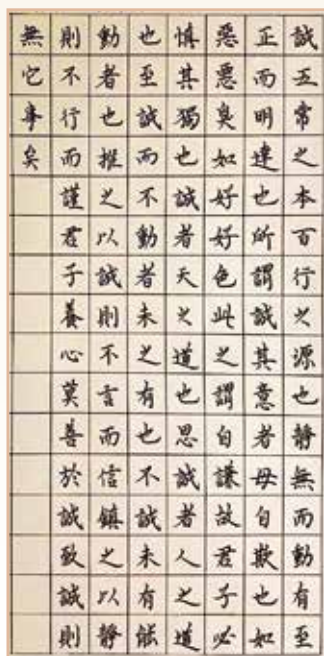 誠五常之本百行之源也靜無而動有至
正而明達也所謂誠其意者毋自欺也如
惡惡臭如好好色此之謂自謙故君子必
慎其獨也誠者天之道也思誠者人之道
也至誠而不動者未之有也不誠未有能
動者也推之以誠則不言而信鎮之以靜
則不行而謹君子養心莫善於誠致誠則
無它事矣